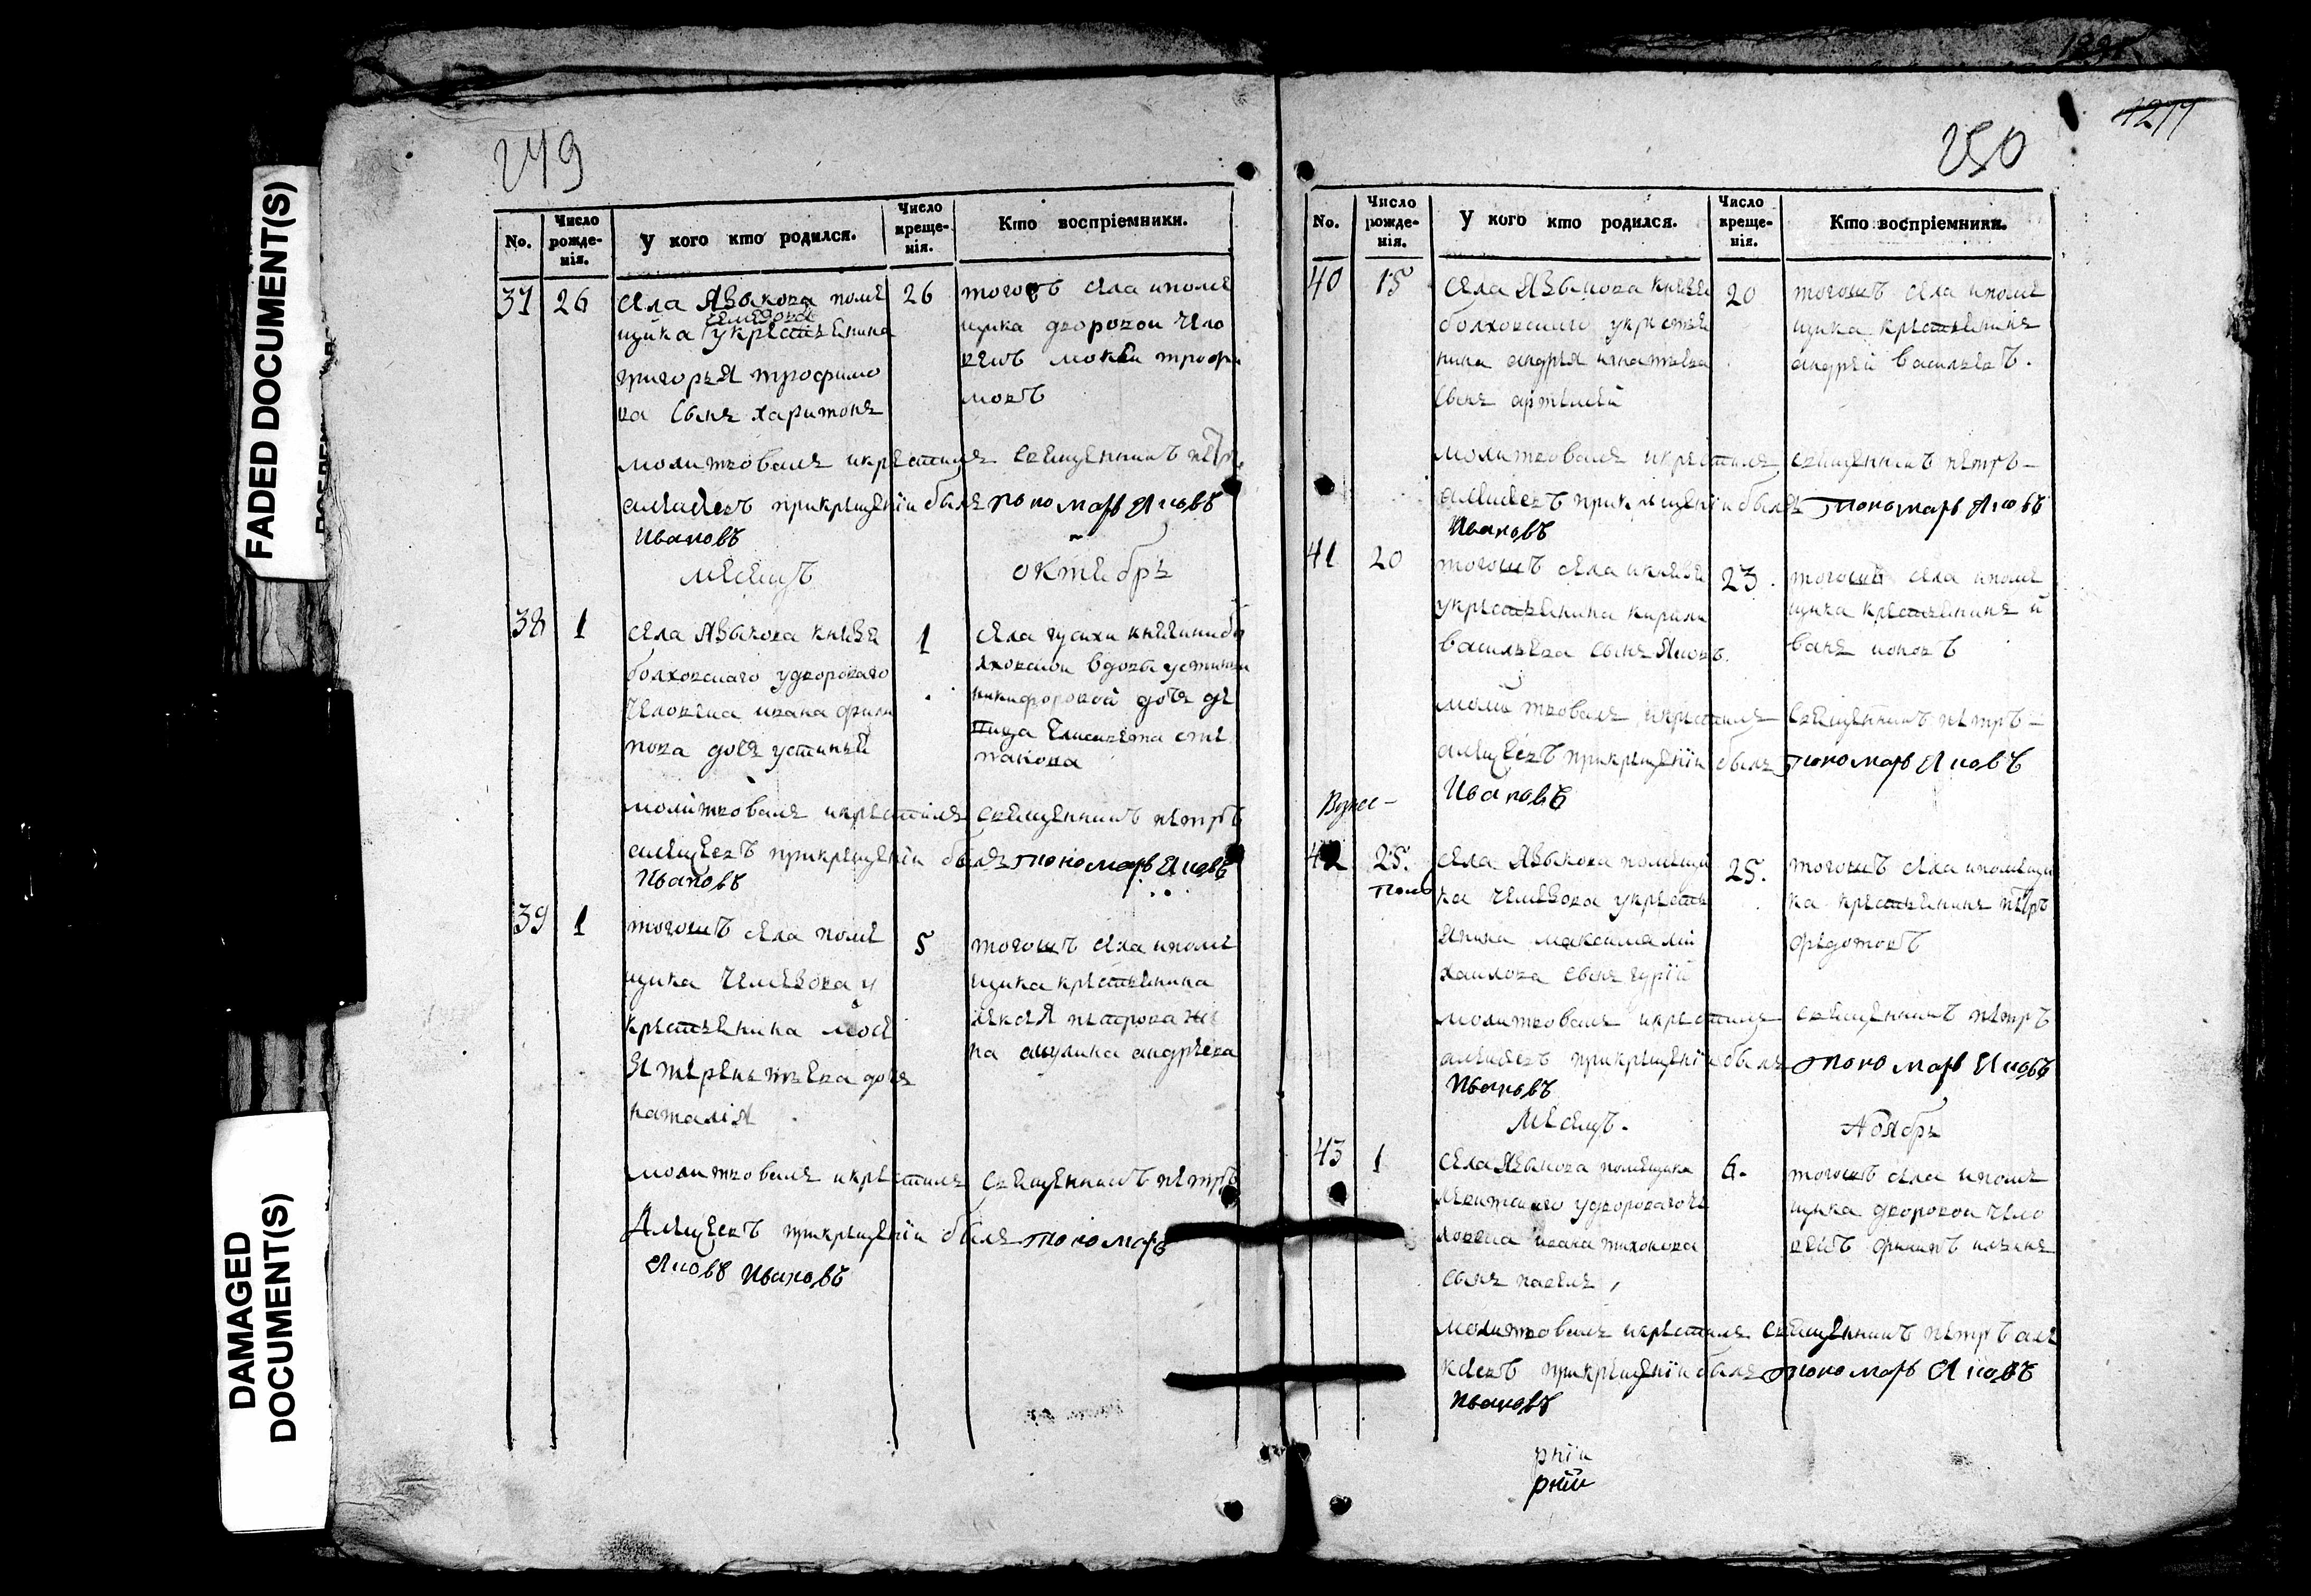 FADED DOCUMENT(S)
DAMAGED DOCUMENT(S)
249
No.
Число рожде-нія.
У кого кто родился.
Число креще-нія.
Кто воспріемники.
37
26
села Языкова поме
щика крестьянина
григорья трофимо
ва сынъ харитонъ
26
тогожъ села и поме
щика дворовои чело
векъ мокеи трофи
мовъ
молитвовалъ икрестилъ священникъ петръ
алексеевъ прикрещеніи былъ пономарь Яковъ
Ивановъ
месецъ октябрь
38
1
села Языкова князя
болховскаго удвороваго
человека ивана фили
пова дочь устинья
1
села гусихи княгини бо
лховскои вдовы устиньи
никифоровой дочь де
вица елисавета сте
панова
молитвовалъ икрестилъ священникъ петръ
алексеевъ прикрещеніи былъ пономарь Яковъ
Ивановъ
39
1
тогожъ села поме
щика у
крестьянина мосе
я терентьева дочь
наталія
5
тогожъ села и поме
щика крестьянина
петрова же
на акулина андреева
молитвовалъ икрестилъ священникъ петръ
Алексеевъ прикрещеніи былъ пономарь
Яковъ Ивановъ
1277
250
No.
Число рожде-нія.
У кого кто родился.
Число креще-нія.
Кто воспріемники.
40
15
села Языкова князя
болховскаго укрестья
нина андрея игнатьева
сынъ артемей
20
тогожъ села и поме
щика крестьянинъ
андрей васильевъ.
молитвовалъ икрестилъ священникъ петръ-
алексеевъ прикрещеніи былъ Пономарь Яковъ
Ивановъ
41
20
тогожъ села и князя
укрестьянина кирилы
васильева сынъ Яковъ.
23.
тогожъ села и поме
щика крестьянинъ и
ванъ
молитвовалъ икрестилъ священникъ петръ-
алексеевъ прикрещеніи былъ Пономарь Яковъ
Ивановъ
42
25.
села Языкова помещи
ка укресть
янина максима ми
хаилова сынъ гурій
25.
тогожъ села и помещи
ка крестьянинъ петръ
федотовъ
молитвовалъ икрестилъ священникъ петръ
алексеевъ прикрещеніи былъ пономарь Яковъ
Ивановъ
Месецъ. Ноябрь
43
1
села Языкова помещика
удвороваго че
ловека ивана тихонова
сынъ павелъ,
6.
тогожъ села и поме
щика дворовои чело
векъ филипъ
молитвовалъ икрестилъ священникъ петръ але
ксеевъ прикрещеніи былъ пономарь Яковъ
Ивановъ
рніи
рніи